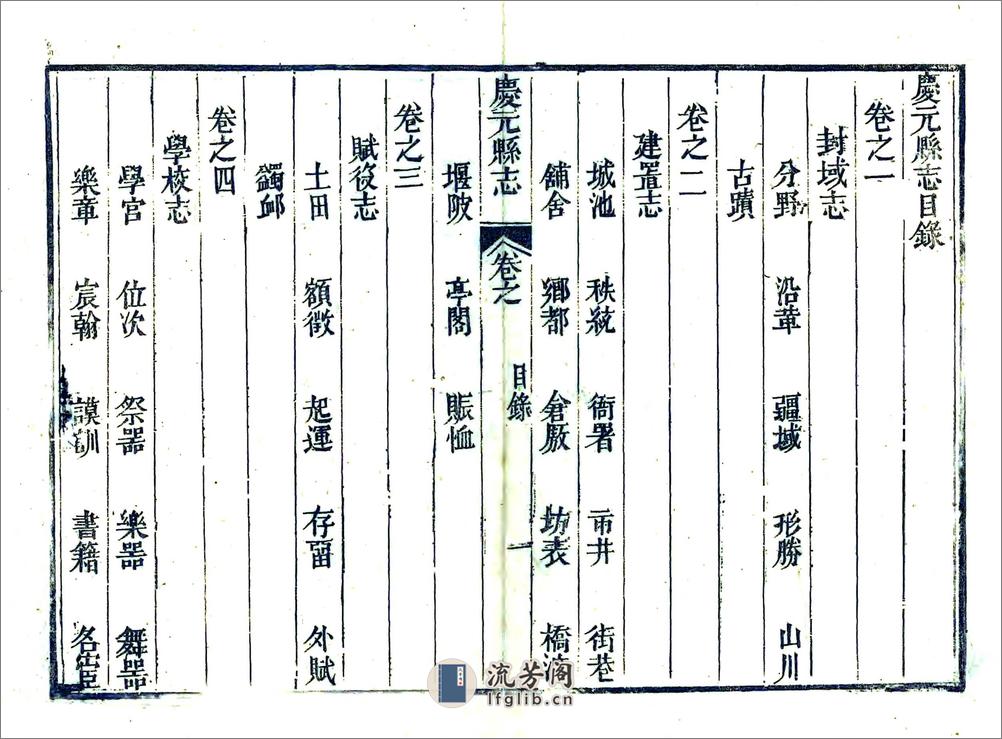 慶元縣志目錄
卷之一
封域志
分野 沿革 疆域 形勝 山川
古蹟
卷之二
建置志
城池 秩統 衙署 市井 街巷
舖舍 鄉都 倉厫 坊表 橋
慶元縣志 卷之 目錄 一
堰陂 亭閣 賑恤
卷之三
賦役志
土田 額徵 起運 存留 外賦
蠲卹
卷之四
學校志
學宫 位次 祭器 樂器 舞器
樂章 宸翰 謨訓 書籍 名宦
流芳阁
lfglib.cn